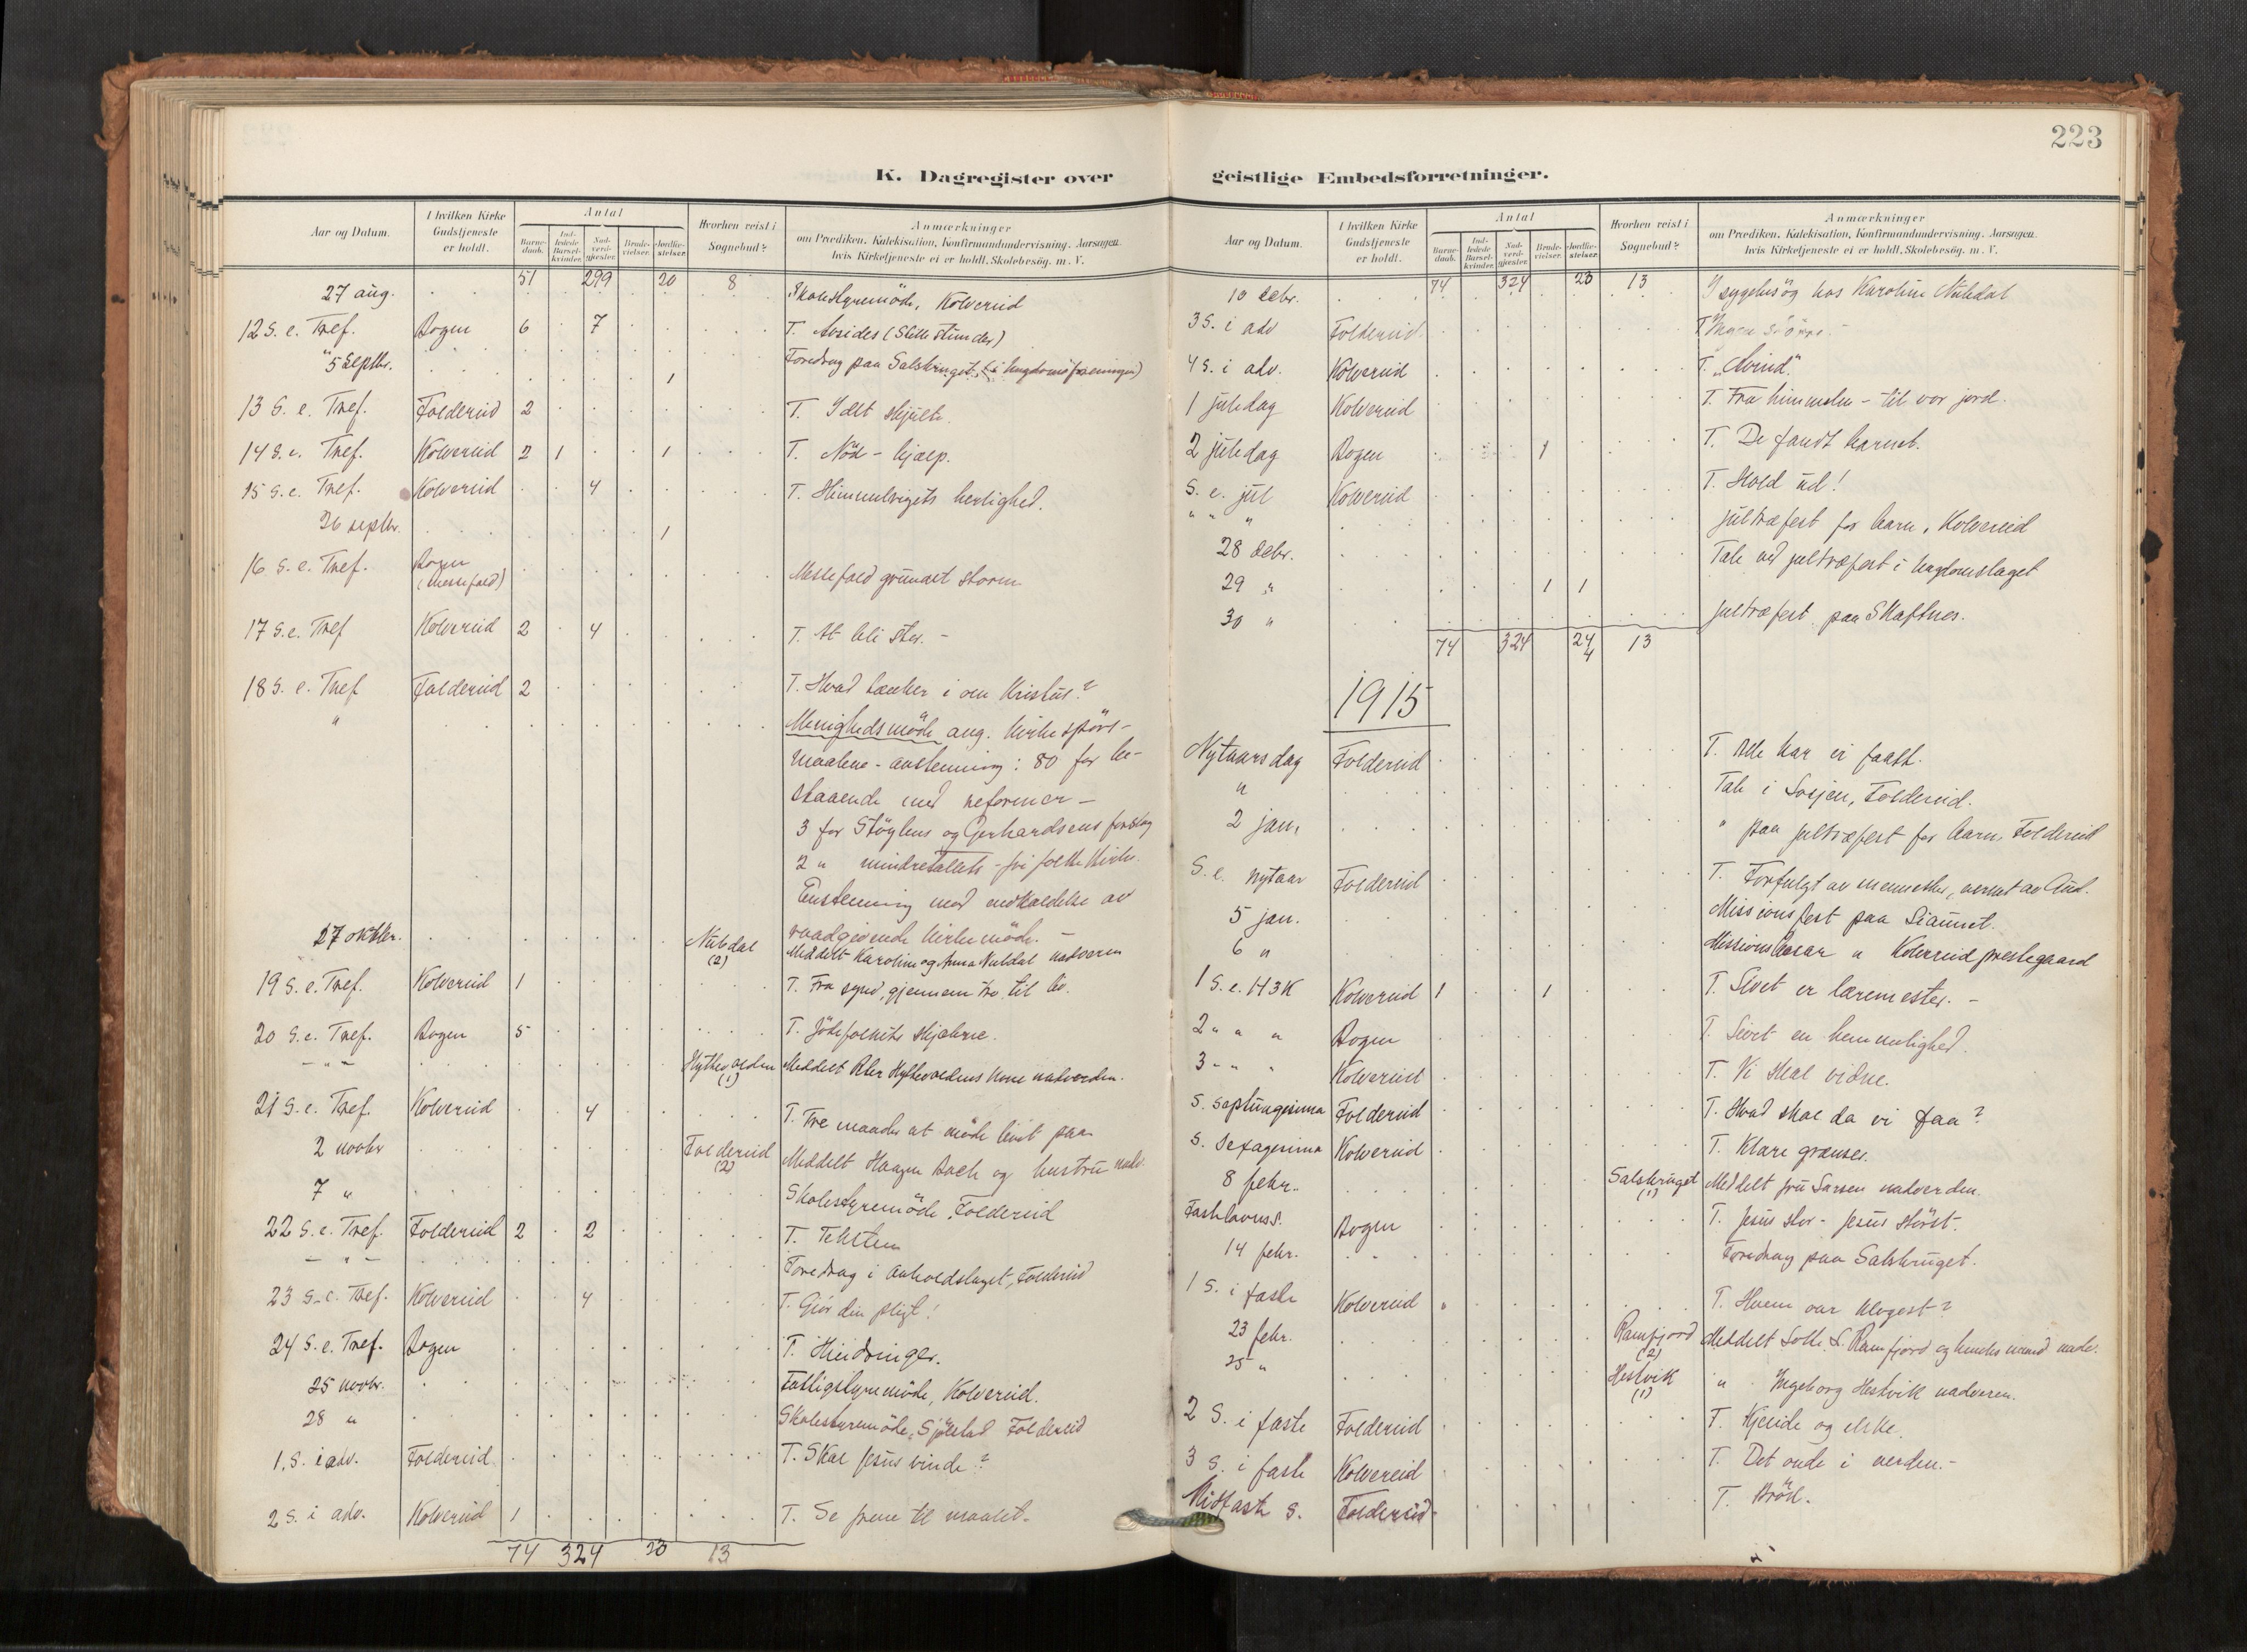 223
K. Dagregister over
geistlige Embedsforretninger.
Aar og Datum.
I hvilken Kirke Gudstjeneste er holdt.
Antal
Barne-daab.
Ind-ledede Barsel-kvinder.
Nad-verd-gjester.
Brude-vielser.
Jordfæ-stelser.
Hvorhen reist i Sognebud?
Anmærkninger
om Prædiken, Katekisation, Konfirmandundervisning. Aarsagen.
hvis Kirketjeneste ei er holdt, Skolebesög. m. V.
51 299 20 8
27 aug. Skolestyremöde, Kolvereid
12 S. e. Tref. Bogen 6 7 T. Avsides (Stille stunder)
" 5 septbr. 1 Foredrag paa Salsbruget (i ungdomsforeningen)
13 S. e. Tref. Foldereid 2 T. I det skjulte.
14 S. e. Tref. Kolvereid 2 1 1 T. Nöd - hjælp.
15 S. e. Tref. Kolvereid 4 T. Himmelrigets herlighed.
26 septbr. 1
16 S. e. Tref. Bogen (Messefald) Messefald grundet storm
17 S. e. Tref Kolvereid 2 4 T. At bli stor. -
18 S. e. Tref Foldereid 2 T. Hvad tænker i om Kristus?
" Menighedsmöde ang. kirkespörs-
maalene - avstemning: 80 for be-
staaende med reformer -
3 for Stöylens og Gerhardsens forslag
2 " mindretallets - fri folkekirke.
Enstemmig med indkaldelse av
raadgivende kirkemöde. -
27 oktbr. Nubdal (2) Meddelt Karoline og Anna Nubdal nadveren
19 S. e. Tref. Kolvereid 1 T. Fra synd, gjennem tro til liv.
20 S. e. Tref. Bogen 5 T. Jödefolkets skjæbne.
- " - (1) Meddelt Peter kone nadverden.
21 S. e. Tref. Kolvereid 4 T. Tre maader at möde livet paa
2 novbr Foldereid (2) Meddelt Haagen Bach og hustru nadv.
7 " Skolestyremöde, Foldereid
22 S. e. Tref. Foldereid 2 2 T. Teksten
- " - Foredrag i avholdslaget, Foldereid
23 S. e. Tref. Kolvereid 4 T. Gjör din pligt!
24 S. e. Tref. Bogen T. Hindringer.
25 novbr. Fattigstyremöde, Kolvereid.
28 " Skolestyremöde, Sjölstad Foldereid
1. S. i adv. Foldereid T. Skal Jesus vinde?
2 S. i adv. Kolvereid 1 T. Se frem til maalet.
74 324 20 13
Aar og Datum.
I hvilken Kirke Gudstjeneste er holdt.
Antal
Barne-daab.
Ind-ledede Barsel-kvinder.
Nad-verd-gjester.
Brude-vielser.
Jordfæ-stelser.
Hvorhen reist i Sognebud?
Anmærkninger
om Prædiken, Katekisation, Konfirmandundervisning. Aarsagen.
hvis Kirketjeneste ei er holdt, Skolebesög. m. V.
74 324 23 13
10 debr. I sygebesög hos Karoline Nubdal
3 S. i adv Foldereid T.
4 S. i adv. Kolvereid T. "Avind".
1 juledag Kolvereid T. Fra himmelen - til vor jord.
2 juledag Bogen 1 T. De fandt barnet.
S. e. jul Kolvereid T. Hold ud!
" " " Juletræfest for barn, Kolvereid
28 debr. Tale ved juletræfest i ungdomslaget
29 " 1 1
30 " Juletræfest paa Skaftnes.
74 324 24 4 13
1915
Nytaarsdag Foldereid T. Alle har vi faatt.
" Tale i Foldereid.
2 jan. " paa juletræfest for barn, Foldereid
S. e. nytaar Foldereid T. Forfulgt av mennesker, vernet av Gud.
5 jan. Missionsfest paa
6 " Missionsbasar " Kolvereid prestegaard
1 S. e. H3K Kolvereid 1 1 T. Livet er læremester. -
2 " " " Bogen T. Livet en hemmelighed.
3 - " " Kolvereid T. Vi skal vidne.
S. Septuagesima Foldereid T. Hvad skal da vi faa?
S. Sexagesima Kolvereid T. Klare grænser.
8 febr. Salsbruget (1) Meddelt fru Larsen nadverden.
Fastelavnss. Bogen T. Jesus stor - Jesus störst.
14 febr. Foredrag paa Salsbruget.
1 S. i faste Kolvereid T. Hvem var klogest?
23 febr. Ramfjord (2) Meddelt Ramfjord og hendes mand nadv.
25 " Hestvik (1) " Ingeborg Hestvik nadveren.
2 S. i faste Foldereid T. Kjende og elske.
3 S. i faste Kolvereid T. Det onde i verden. -
Midfaste S. Foldereid T. Bröd.